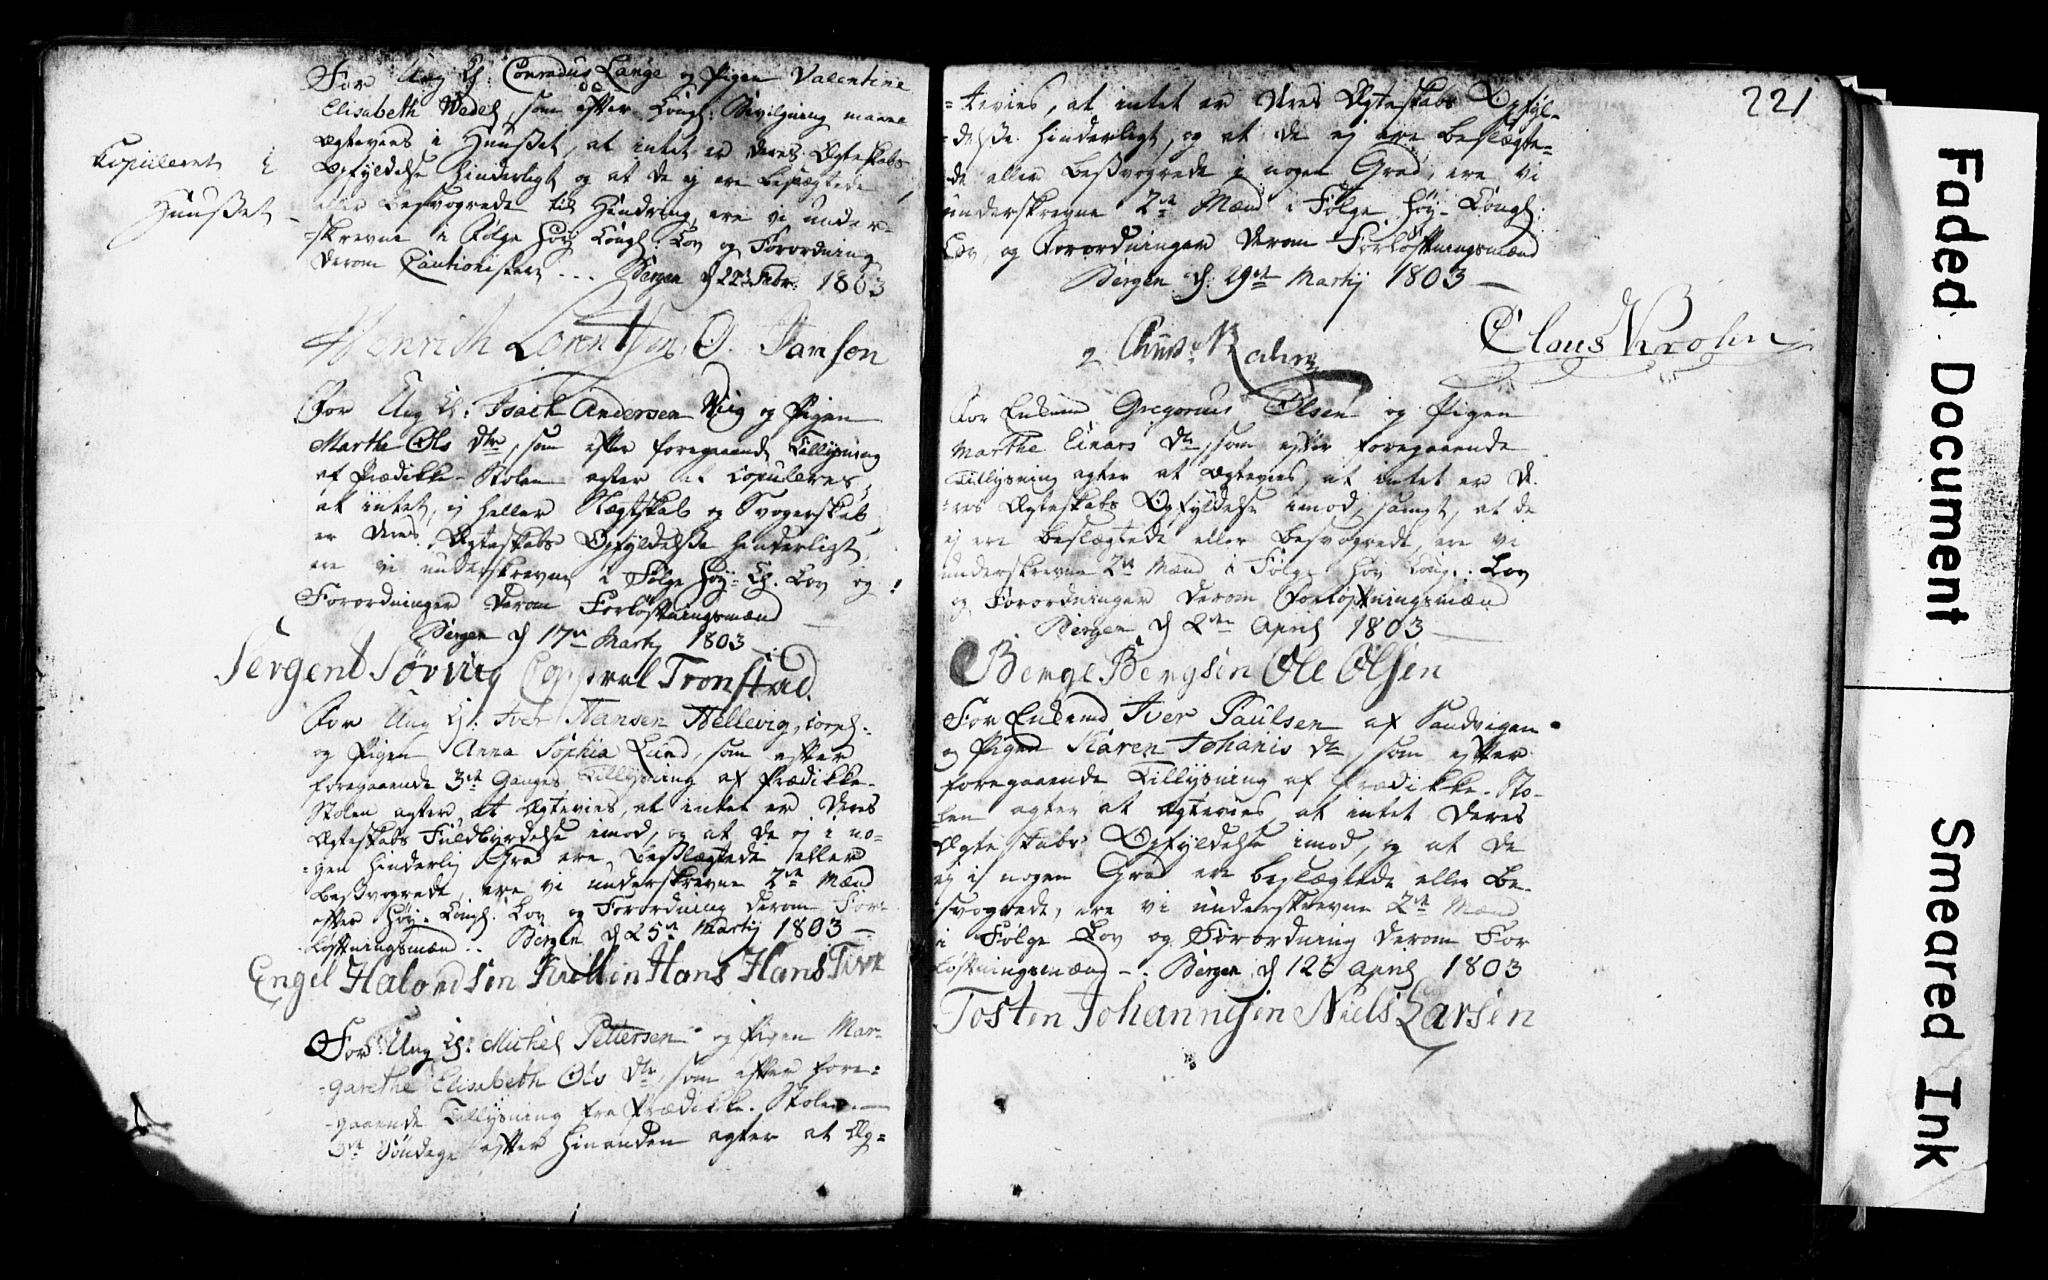 For Ung K: Conradus Lange og Pigen Valentine
Elisabeth Wedel, som efter Kongl: Bevilgning
Ægtevies i Huuset, at intet er deres Ægteskabs
Opfyldelse hinderligt og at de ej ere beslægtede
eller besvogrede til Hindring, ere vi under-
-skrevne i Følge høy Kongl: Lov og Forordning
derom Cautionister --- Bergen d 22 Febr: 1803
Copulleret i
Huuset
Henrich Lorentzen O. Jansen
For Ung K: Isack Andersen og Pigen
Marthe Ols dtr, som efter foregaaende Tillysning
af Prædikke-Stolen agter at Copuleres,
at intet, ej heller Slægtskab og Svogerskab
er deres Ægteskabs Opfyldelse hinderligt,
ere vi underskrevne i Følge høy- K. Lov og
Forordninger derom Forløftningsmænd
Bergen d 17de Martj 1803
Sergent Sørvig Corperal Tronstad
For Ung K: Iver Hansen Hellevig,
og Pigen Anna Sophia Lund, som efter
foregaaende 3de Ganges Tillysning af Prædikke-
Stolen agter at Ægtevies, at intet er deres
Ægteskabs Fuldbyrdelse imod, og at de ej i no-
-gen hinderlig Grad ere beslægtede eller
besvogrede, ere vi underskrevne 2de Mænd
efter høy- Kongl. Lov og Forordning derom For-
løftningsmænd .. Bergen d 25de Martij 1803 -
Engel Halvorsen Hans Hans
For Ung K: Michel Pettersen og Pigen Mar-
-garethe Elisabeth Ols dtr, som efter fore-
-gaaende Tillysning fra Prædikke-Stolen
3de Søndage efter hinanden agter at Æg-
221
-tevies, at intet er deres Ægteskabs Opfyl-
-delse hinderligt, og at de ej ere beslægte-
-de eller besvogrede i nogen Grad, ere vi
underskrevne 2de Mænd i Følge høy- Kongl:
Lov, og Forordninger derom Forløftningsmænd
Bergen d: 19de Martij 1803 -
Claus Krohn
For Enkemd Gregorius Olsen og Pigen
Marthe Einars dtr, som efter foregaaende
Tillysning agter at Ægtevies, at intet er de-
-res Ægteskabs Opfyldelse imod, samt, at de
ej ere beslægtede eller besvogrede, ere vi
underskrevne 2de Mænd i Følge høy Kongl. Lov
og Forordninger derom Forløftningsmænd
Bergen d 2den April 1803 -
Berge Bergsen Ole Olsen
For Enkemd Iver Paulsen af Sandvigen
og Pigen Karen Johanis dtr, som efter
foregaaende Tillysning af Prædikke-Sto-
-len agter at Ægtevies at intet deres
Ægteskabs Opfyldelse imod, og at de
ej i nogen Grad ere beslægtede eller be-
svogrede, ere vi underskrevne 2de Mænd
i Følge Lov og Forordning derom For
løftningsmænd -. Bergen d 12 April 1803
Tosten Johannesen Niels Larsen
Faded Document
Smeared Ink